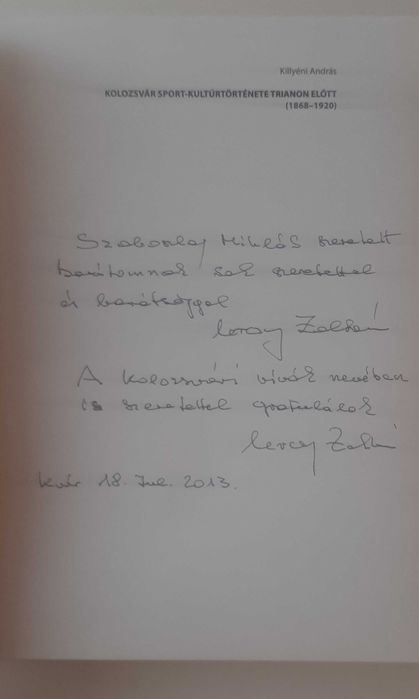 Killyéni András
KOLOZSVÁR SPORT-KULTÚRTÖRTÉNETE TRIANON ELŐTT
(1868–1920)
Szaboslay Miklós szeretett
barátomnak sok szeretettel
és barátsággal
Zoltán
A kolozsvári vívók nevében
is szeretettel gratulálok
Kvár 18. Jul. 2013.